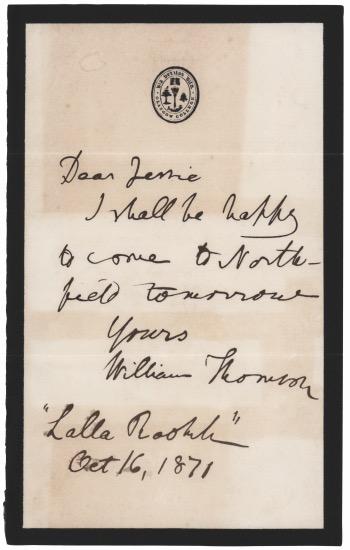 Dear Jessie
I shall be happy
to come to North-
field tomorrow
Yours
William Thomson
"Lalla Rookh"
Oct 16, 1871